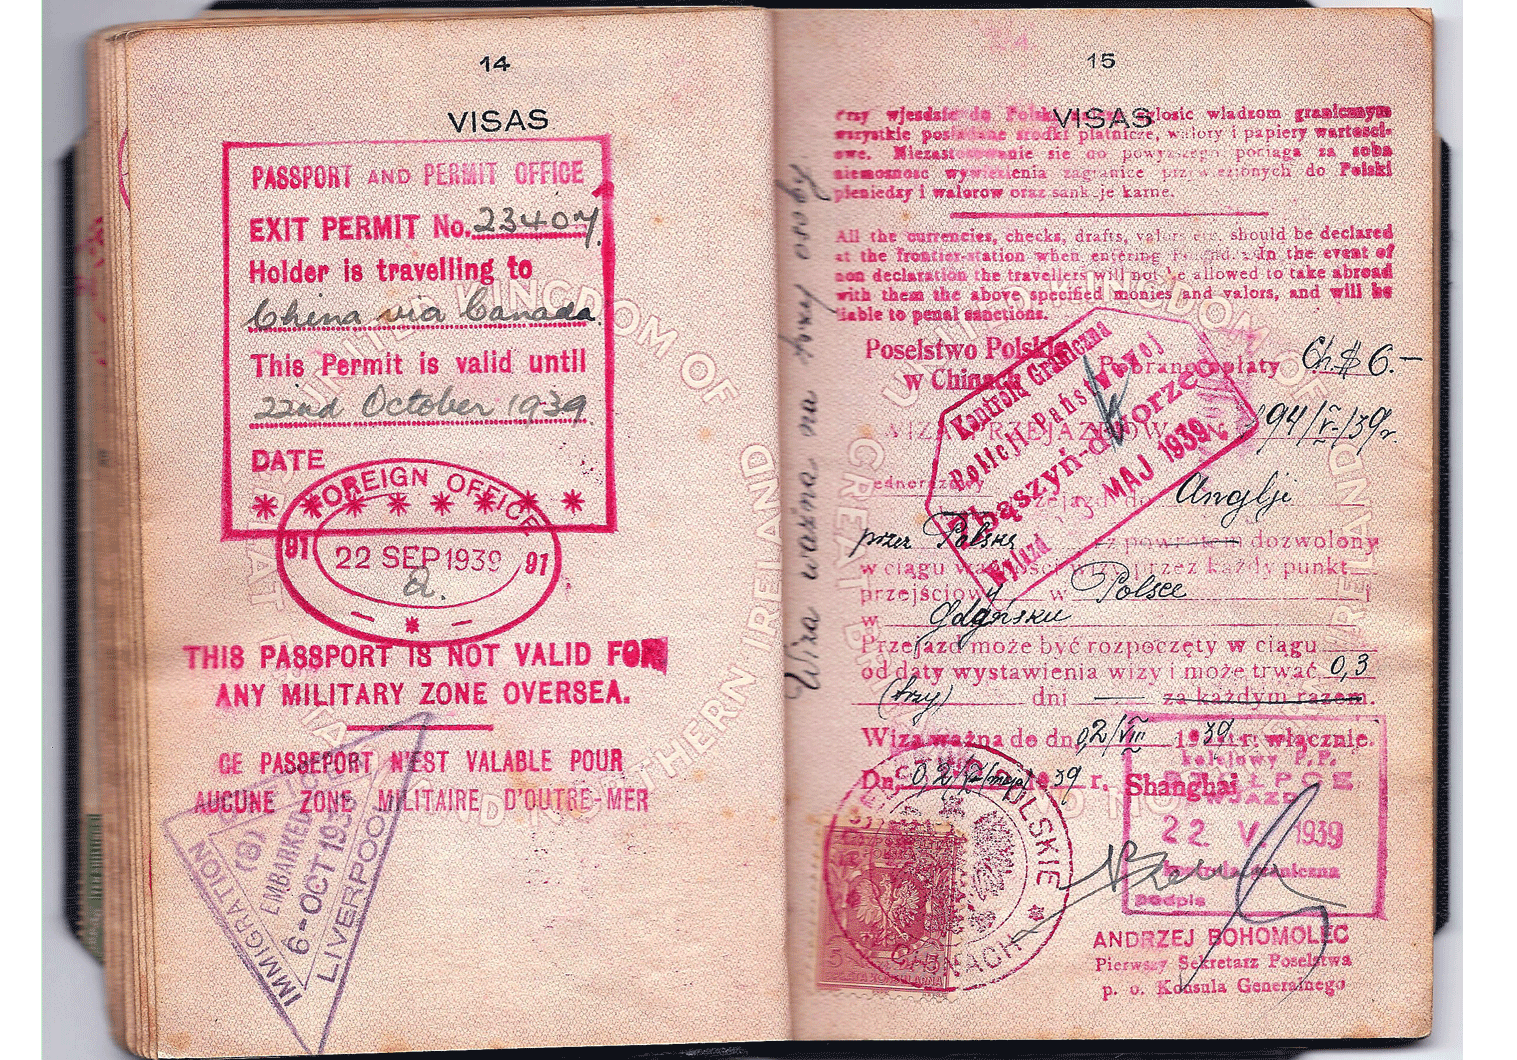 14
VISAS
PASSPORT AND PERMIT OFFICE
EXIT PERMIT No. 23407
Holder is travelling to
China via Canada
This Permit is valid until
22nd October 1939
DATE
* * * * * * * *
FOREIGN OFFICE
91 22 SEP 1939 91
*
THIS PASSPORT IS NOT VALID FOR
ANY MILITARY ZONE OVERSEA.
CE PASSEPORT N'EST VALABLE POUR
AUCUNE ZONE MILITAIRE D'OUTRE-MER
IMMIGRATION
EMBARKED
6-OCT 193
LIVERPOOL
UNITED KINGDOM OF
GREAT BRITAIN
AND NORTHERN IRELAND
15
VISAS
Przy wjezdzie do Polski wladzom granicznym
wszystkie posiadane srodki platnicze, walory i papiery wartosci-
owe. Niezastosowanie sie do powyzszego pociaga za soba
niemosnosc wywiezienia zagranice przywiezionych do Polski
pieniedzy i walorow oraz sankcje karne.
All the currencies, checks, drafts, valors etc. should be declared
at the frontier-station when entering Poland. In the event of
non declaration the travellers will not be allowed to take abroad
with them the above specified monies and valors, and will be
liable to penal sanctions.
Poselstwo Polskie
w Chinach
Pobrano opłaty Ch.$ 6.—
194/V-/39r.
WIZA PRZEJAZDOWA
Jednorazowy
przejazd Anglji
przez Polskę z powrotem dozwolony
w ciągu ważności wizy przez każdy punkt
przejściowy w Polsce i
w Gdańsku
Przejazd może być rozpoczęty w ciągu
od daty wystawienia wizy i może trwać 0,3
(trzy) dni — za każdym razem.
Wiza ważna do dn. 02/VIII 1939 r. włącznie.
Dn. 02/V (maja) 39 r. Shanghai
Wiza ważna na trzy osoby
Kontrola Graniczna
Policji Państwowej
Zbąszyń-dworzec
3 MAJ 1939
Wyjazd
POSELSTWO POLSKIE
W CHINACH
kolejowy P.P.
WJAZD
22 V. 1939
kontrola graniczna
podpis
ANDRZEJ BOHOMOLEC
Pierwszy Sekretarz Poselstwa
p. o. Konsula Generalnego
UNITED KINGDOM OF
GREAT BRITAIN
AND NORTHERN IRELAND